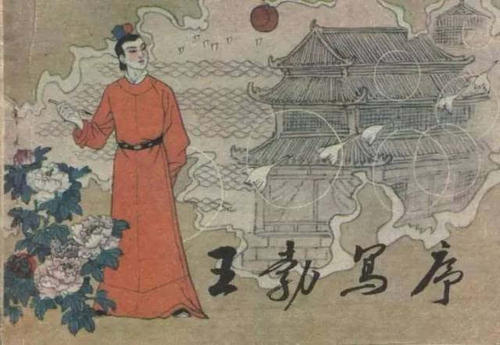 王勃写序